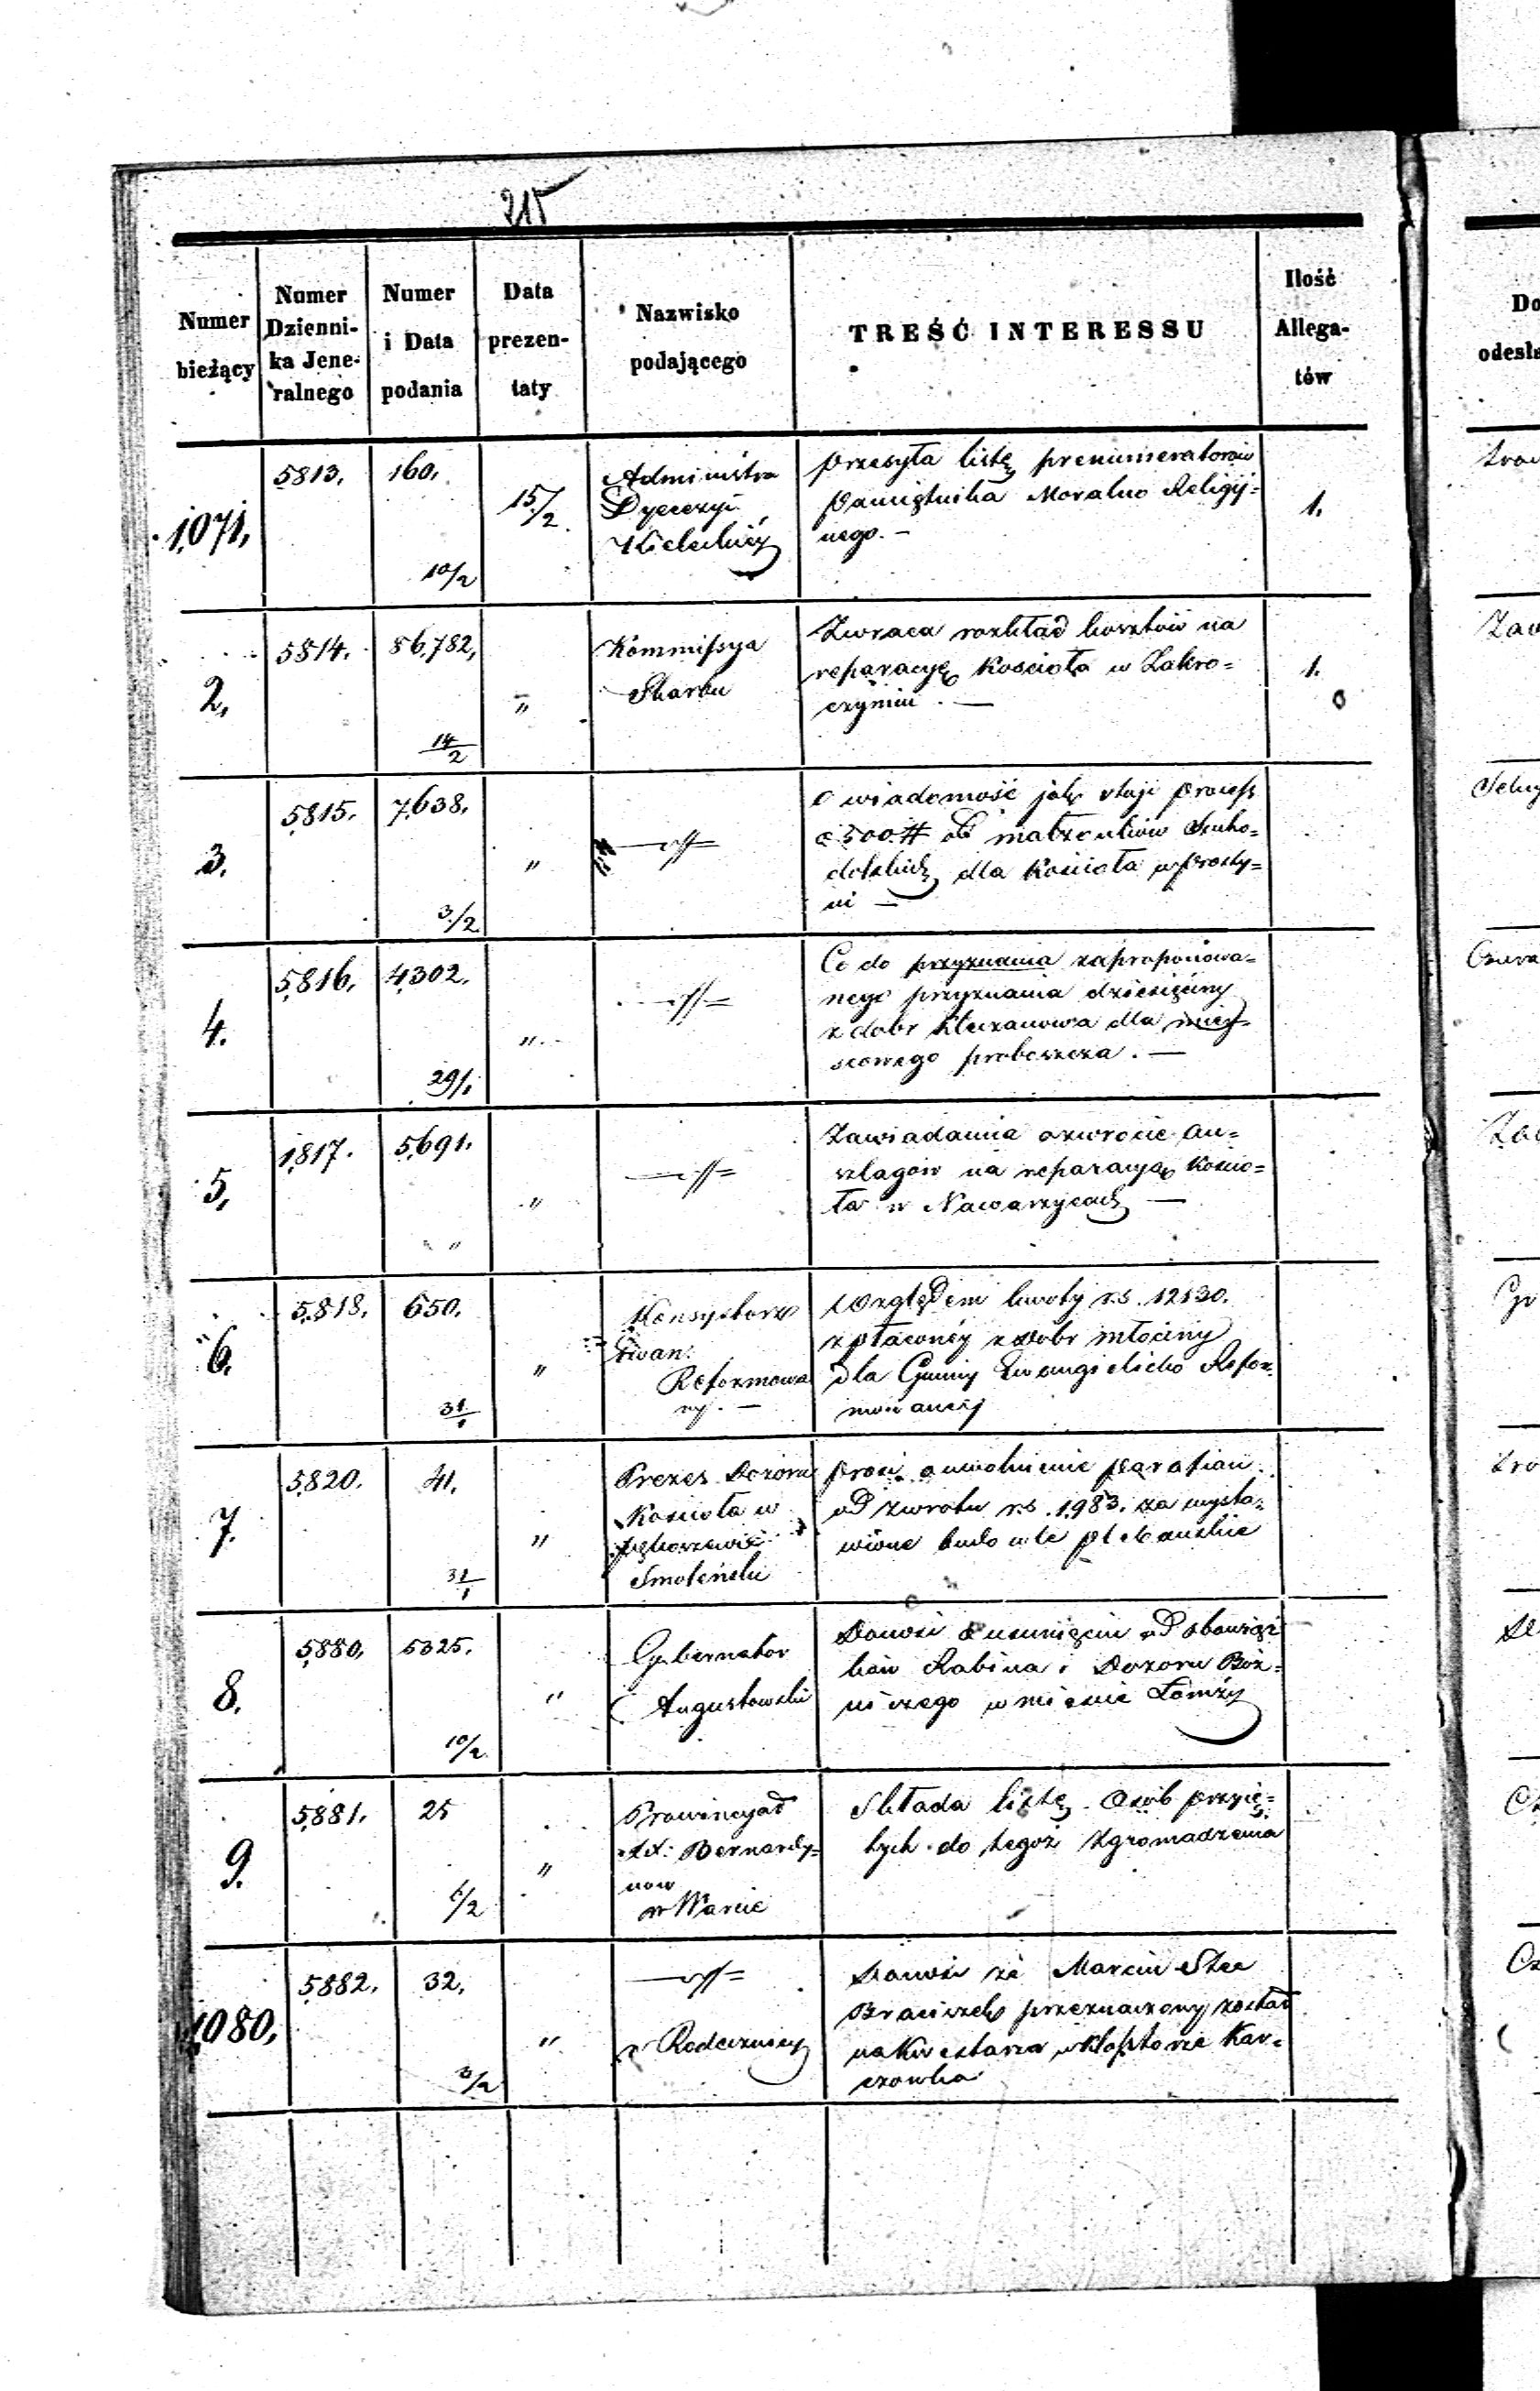 215
Numer bieżący
Numer Dziennika Jeneralnego
Numer i Data podania
Data prezentaty
Nazwisko podającego
TREŚĆ INTERESSU
Ilość Allegatów
1,071,
5,813,
160,
10/2
15/2
Administra
Dyecezyi
Kieleckiéj
przesyła listę prenumeratorów
Pamiętnika Moralno Religij=
nego. –
1.
2,
5,814.
86,782,
14/2
"
Kommissya
Skarbu
Zwraca rozkład kosztów na
reparacyę Kościoła w Zakro=
czymiu . —
1.
3.
5,815.
7,638,
3/2
"
O wiadomość jak stoji process
o 500 # od małżonków Sucho=
dolskich dla Kościoła w Prosty=
ni —
4.
5,816,
4,302.
29/1
"
Co do przyznania zaproponowa=
nego przyznania dziesięciny
z dobr Kluczanowa dla miej=
scowego proboszcza . —
5,
1,817.
5,691.
"
"
Zawiadamia o zwrocie an=
szlagów na reparacyą Kościo=
ła w Nawarzycach —
6.
5,818,
650.
31/1
"
Konsystorz
Ewan:
Reformowa
ny . —
Względem kwoty r.s. 12130.
spłaconéj z dobr Młociny
dla Gminy Ewangielicko Refor=
mowanéj
7.
5,820.
41,
31/1
"
Prezes Dozoru
Kościoła w
Smoleński
prosi o uwolnienie parafian
od zwrotu r.s. 1,983. za wysta=
wione budowle plebańskie
8.
5,880,
5325.
10/2
"
Gubernator
Augustowski
Donosi o usunięciu od obowiąz
ków Rabina i Dozoru Boż=
niczego w mieście Łomży
9.
5,881.
25
6/2
"
Prowincyał
XX: Bernardy=
nów
w Warcie
Składa listę Osób przyję=
tych do tegoż Zgromadzenia
1,080,
5,882.
32,
3/2
"
w Radecznicy
Donosi że Marcin Stec
Braciszek przeznaczony został
na Kwestarza w Klasztorze Kar=
czowka